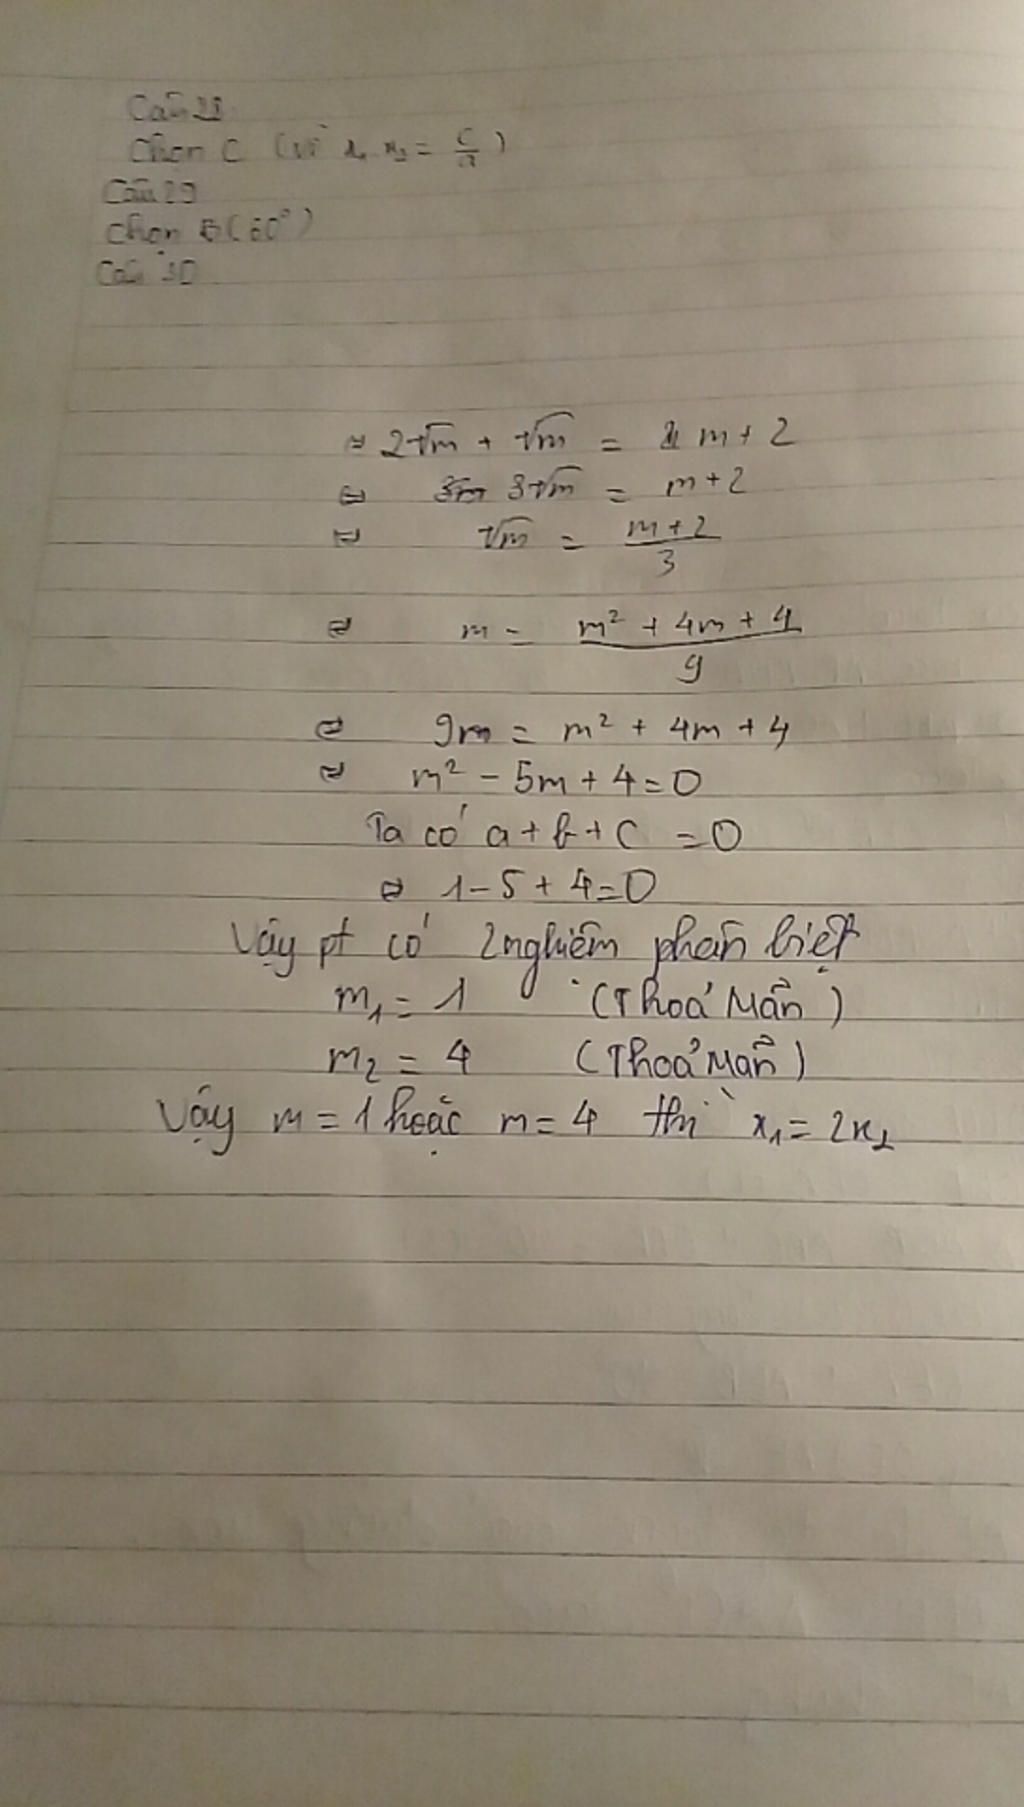 Câu 28
Chọn C (Vì x₁ x₂ = c/a)
Câu 29
Chọn B (60°)
Câu 30
⇔ 2√m + √m = m + 2
⇔ 3√m = m + 2
⇔ √m = (m + 2)/3
⇔ m = (m² + 4m + 4)/9
⇔ 9m = m² + 4m + 4
⇔ m² - 5m + 4 = 0
Ta có a + b + c = 0
⇔ 1 - 5 + 4 = 0
Vậy pt có 2 nghiệm phân biệt
m₁ = 1 (Thoả Mãn)
m₂ = 4 (Thoả Mãn)
Vậy m = 1 hoặc m = 4 thì x₁ = 2x₂